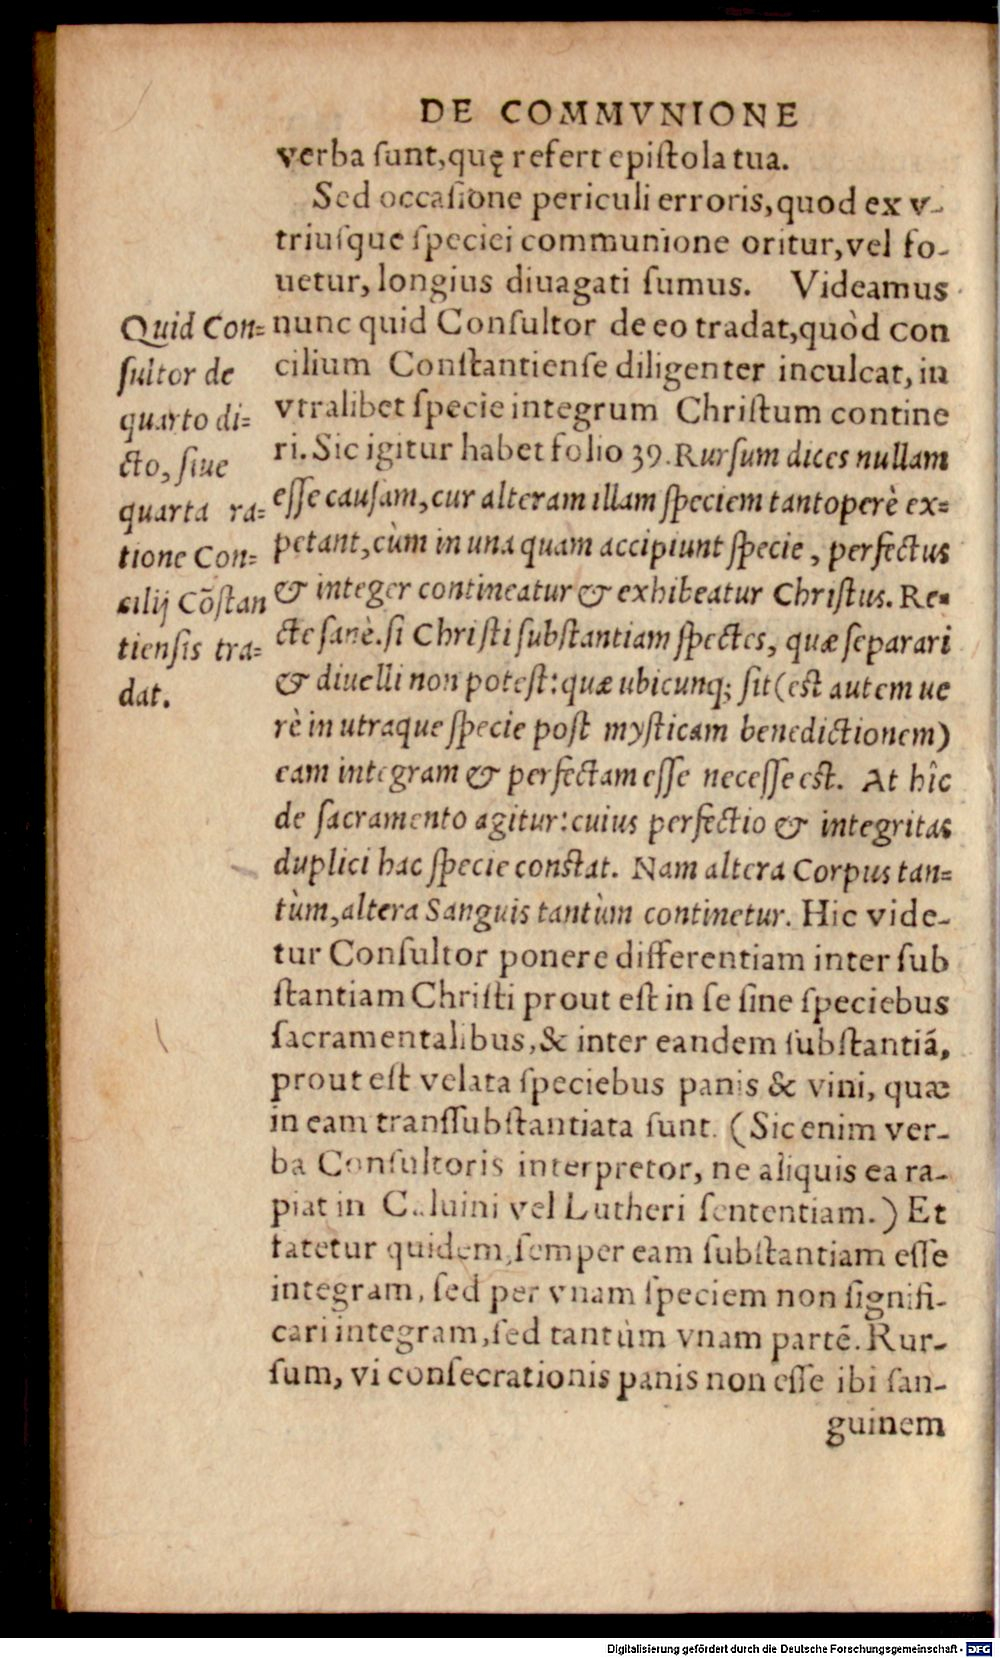 DE COMMVNIONE
verba sunt, quę refert epistola tua.
Sed occasione periculi erroris, quod ex v-
triusque speciei communione oritur, vel fo-
uetur, longius diuagati sumus. Videamus
nunc quid Consultor de eo tradat, quòd con
cilium Constantiense diligenter inculcat, in
vtralibet specie integrum Christum contine
ri. Sic igitur habet folio 39. Rursum dices nullam
esse causam, cur alteram illam speciem tantoperè ex=
petant, cùm in una quam accipiunt specie, perfectus
& integer contineatur & exhibeatur Christus. Re=
cte sanè. si Christi substantiam spectes, quæ separari
& diuelli non potest: quæ ubicunq; sit (est autem ue
rè in utraque specie post mysticam benedictionem)
eam integram & perfectam esse necesse est. At hîc
de sacramento agitur: cuius perfectio & integritas
duplici hac specie constat. Nam altera Corpus tan=
tùm, altera Sanguis tantùm continetur. Hic vide-
tur Consultor ponere differentiam inter sub
stantiam Christi prout est in se sine speciebus
sacramentalibus, & inter eandem substantiã,
prout est velata speciebus panis & vini, quæ
in eam transsubstantiata sunt. (Sic enim ver-
ba Consultoris interpretor, ne aliquis ea ra-
piat in Caluini vel Lutheri sententiam.) Et
fatetur quidem, semper eam substantiam esse
integram, sed per vnam speciem non signifi-
cari integram, sed tantùm vnam partē. Rur-
sum, vi consecrationis panis non esse ibi san-
guinem
Quid Con=
sultor de
quarto di=
cto, siue
quarta ra=
tione Con=
cilij Cõstan
tiensis tra=
dat.
Digitalisierung gefördert durch die Deutsche Forschungsgemeinschaft - DFG